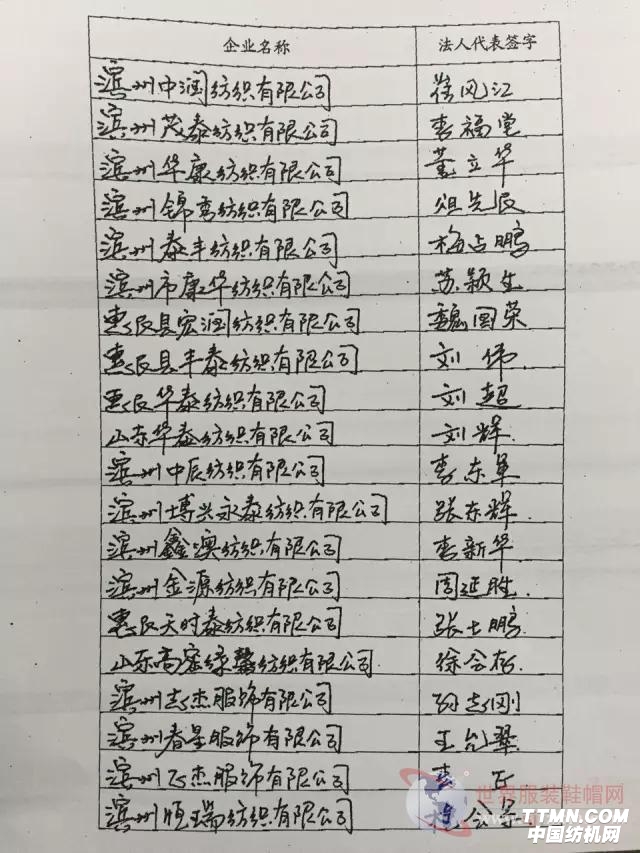 企业名称 法人代表签字
滨州中润纺织有限公司 风江
滨州茂泰纺织有限公司 李福堂
滨州华康纺织有限公司 董立华
滨州锦 纺织有限公司 先
滨州泰丰纺织有限公司 梅占鹏
滨州市康华纺织有限公司 苏颖生
惠民县宏润纺织有限公司 魏国荣
惠民县丰泰纺织有限公司 刘伟
惠民华泰纺织有限公司 刘超
山东华泰纺织有限公司 刘辉
滨州中辰纺织有限公司 李东军
滨州博兴永泰纺织有限公司 张东辉
滨州鑫澳纺织有限公司 李新华
滨州金源纺织有限公司 周延胜
惠民天时泰纺织有限公司 张士鹏
山东高密绿馨纺织有限公司 徐会
滨州志杰服饰有限公司 志刚
滨州春星服饰有限公司 王
滨州 杰服饰有限公司 李
滨州恒瑞纺织有限公司
世界服装鞋帽网
TTMN.COM
中国纺机网